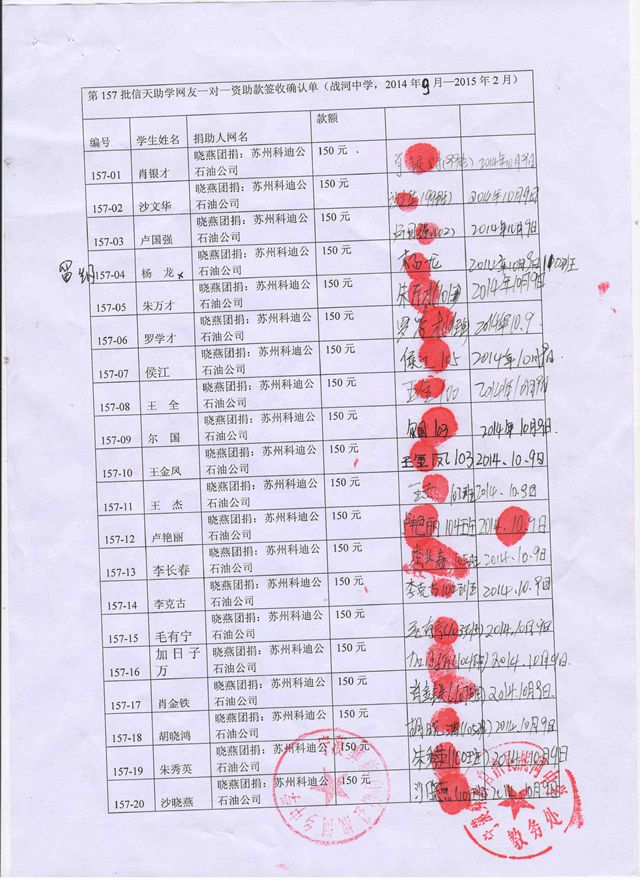 第 157 批信天助学网友一对一资助款签收确认单（战河中学，2014 年 9 月—2015 年 2 月）
编号 学生姓名 捐助人网名 款额
157-01 肖银才 晓燕团捐：苏州科迪公石油公司 150 元 2014年10月9日
157-02 沙文华 晓燕团捐：苏州科迪公石油公司 150 元 2014年10月9日
157-03 卢国强 晓燕团捐：苏州科迪公石油公司 150 元 2014年10月9日
157-04 杨 龙 晓燕团捐：苏州科迪公石油公司 150 元 杨龙 2014年10月9日
157-05 朱万才 晓燕团捐：苏州科迪公石油公司 150 元 2014年10月9日
157-06 罗学才 晓燕团捐：苏州科迪公石油公司 150 元 2014年10.9
157-07 侯江 晓燕团捐：苏州科迪公石油公司 150 元 侯江 105 2014年10月9日
157-08 王 全 晓燕团捐：苏州科迪公石油公司 150 元 王全 2014年10月9日
157-09 尔 国 晓燕团捐：苏州科迪公石油公司 150 元 尔国 103 2014年10月9日
157-10 王金凤 晓燕团捐：苏州科迪公石油公司 150 元 王金凤 103 2014.10.9日
157-11 王 杰 晓燕团捐：苏州科迪公石油公司 150 元 王杰 103班 2014.10.9日
157-12 卢艳丽 晓燕团捐：苏州科迪公石油公司 150 元 卢艳丽 104班 2014.10.9日
157-13 李长春 晓燕团捐：苏州科迪公石油公司 150 元 李长春 2014.10.9日
157-14 李克古 晓燕团捐：苏州科迪公石油公司 150 元 李克古 2014.10.9日
157-15 毛有宁 晓燕团捐：苏州科迪公石油公司 150 元 2014.10月9日
157-16 加日子万 晓燕团捐：苏州科迪公石油公司 150 元 2014.10月9日
157-17 肖金铁 晓燕团捐：苏州科迪公石油公司 150 元 肖金铁 2014.10月9日
157-18 胡晓鸿 晓燕团捐：苏州科迪公石油公司 150 元 2014.10月9日
157-19 朱秀英 晓燕团捐：苏州科迪公石油公司 150 元 朱秀英 2014.10月9日
157-20 沙晓燕 晓燕团捐：苏州科迪公石油公司 150 元 2014.10月9日
教务处